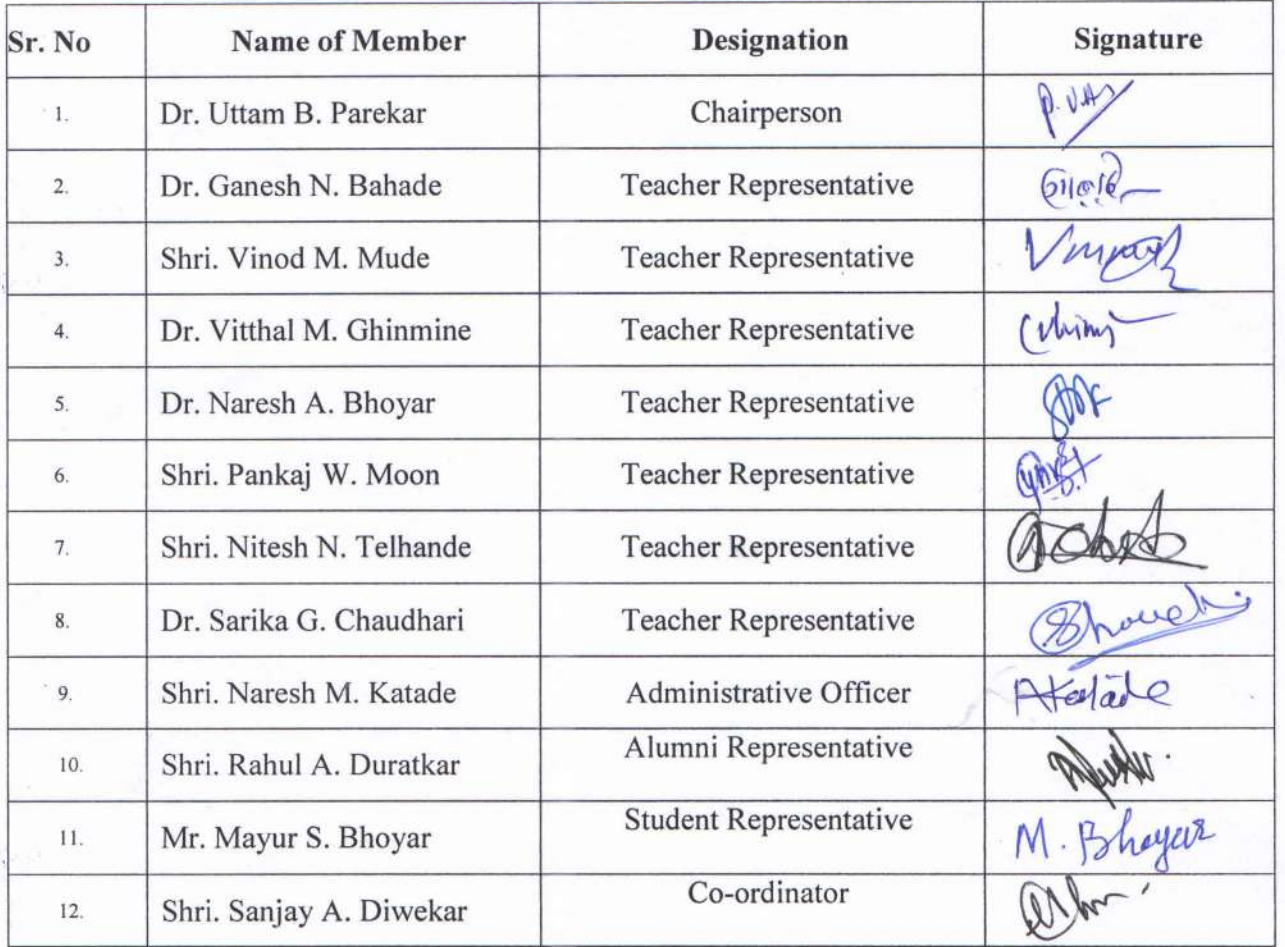 Sr. No Name of Member Designation Signature
1. Dr. Uttam B. Parekar Chairperson
2. Dr. Ganesh N. Bahade Teacher Representative
3. Shri. Vinod M. Mude Teacher Representative
4. Dr. Vitthal M. Ghinmine Teacher Representative
5. Dr. Naresh A. Bhoyar Teacher Representative
6. Shri. Pankaj W. Moon Teacher Representative
7. Shri. Nitesh N. Telhande Teacher Representative
8. Dr. Sarika G. Chaudhari Teacher Representative
9. Shri. Naresh M. Katade Administrative Officer
10. Shri. Rahul A. Duratkar Alumni Representative
11. Mr. Mayur S. Bhoyar Student Representative M. Bhoyar
12. Shri. Sanjay A. Diwekar Co-ordinator